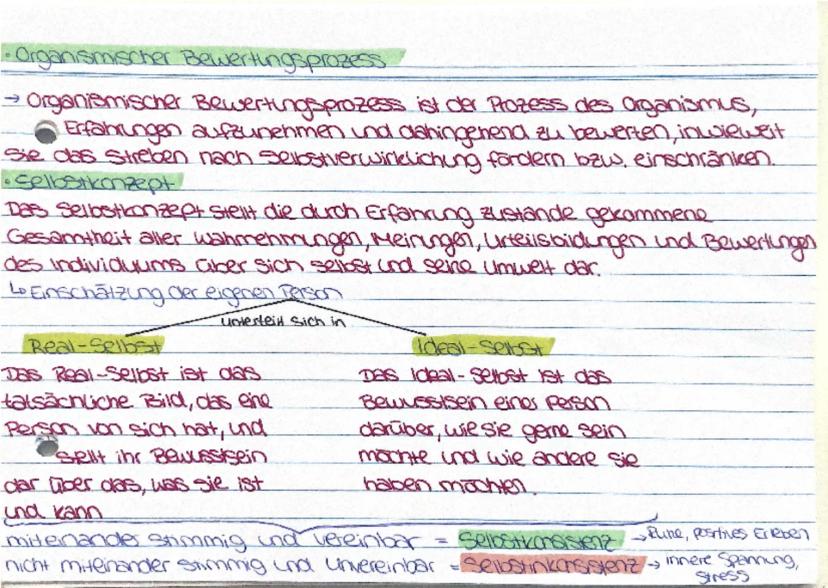 · Organismischer Bewertungsprozess
→ Organismischer Bewertungsprozess ist der Prozess des Organismus,
Erfahrungen aufzunehmen und dahingehend zu bewerten, inwieweit
sie das Streben nach Selbstverwirklichung fördern bzw. einschränken.
· Selbstkonzept
Das Selbstkonzept stellt die durch Erfahrung zustande gekommene
Gesamtheit aller Wahrnehmungen, Meinungen, Urteilsbildungen und Bewertungen
des Individuums über sich selbst und seine Umwelt dar.
↳ Einschätzung der eigenen Person
unterteilt sich in
Real-Selbst
Das Real-Selbst ist das
tatsächliche Bild, das eine
Person von sich hat, und
stellt ihr Bewusstsein
dar über das, was sie ist
und kann
Ideal-Selbst
Das Ideal-Selbst ist das
Bewusstsein einer Person
darüber, wie sie gerne sein
möchte und wie andere sie
haben möchten.
miteinander stimmig und vereinbar = Selbstkonsistenz → Ruhe, positives Erleben
nicht miteinander stimmig und unvereinbar = Selbstinkonsistenz → innere Spannung,
Stress